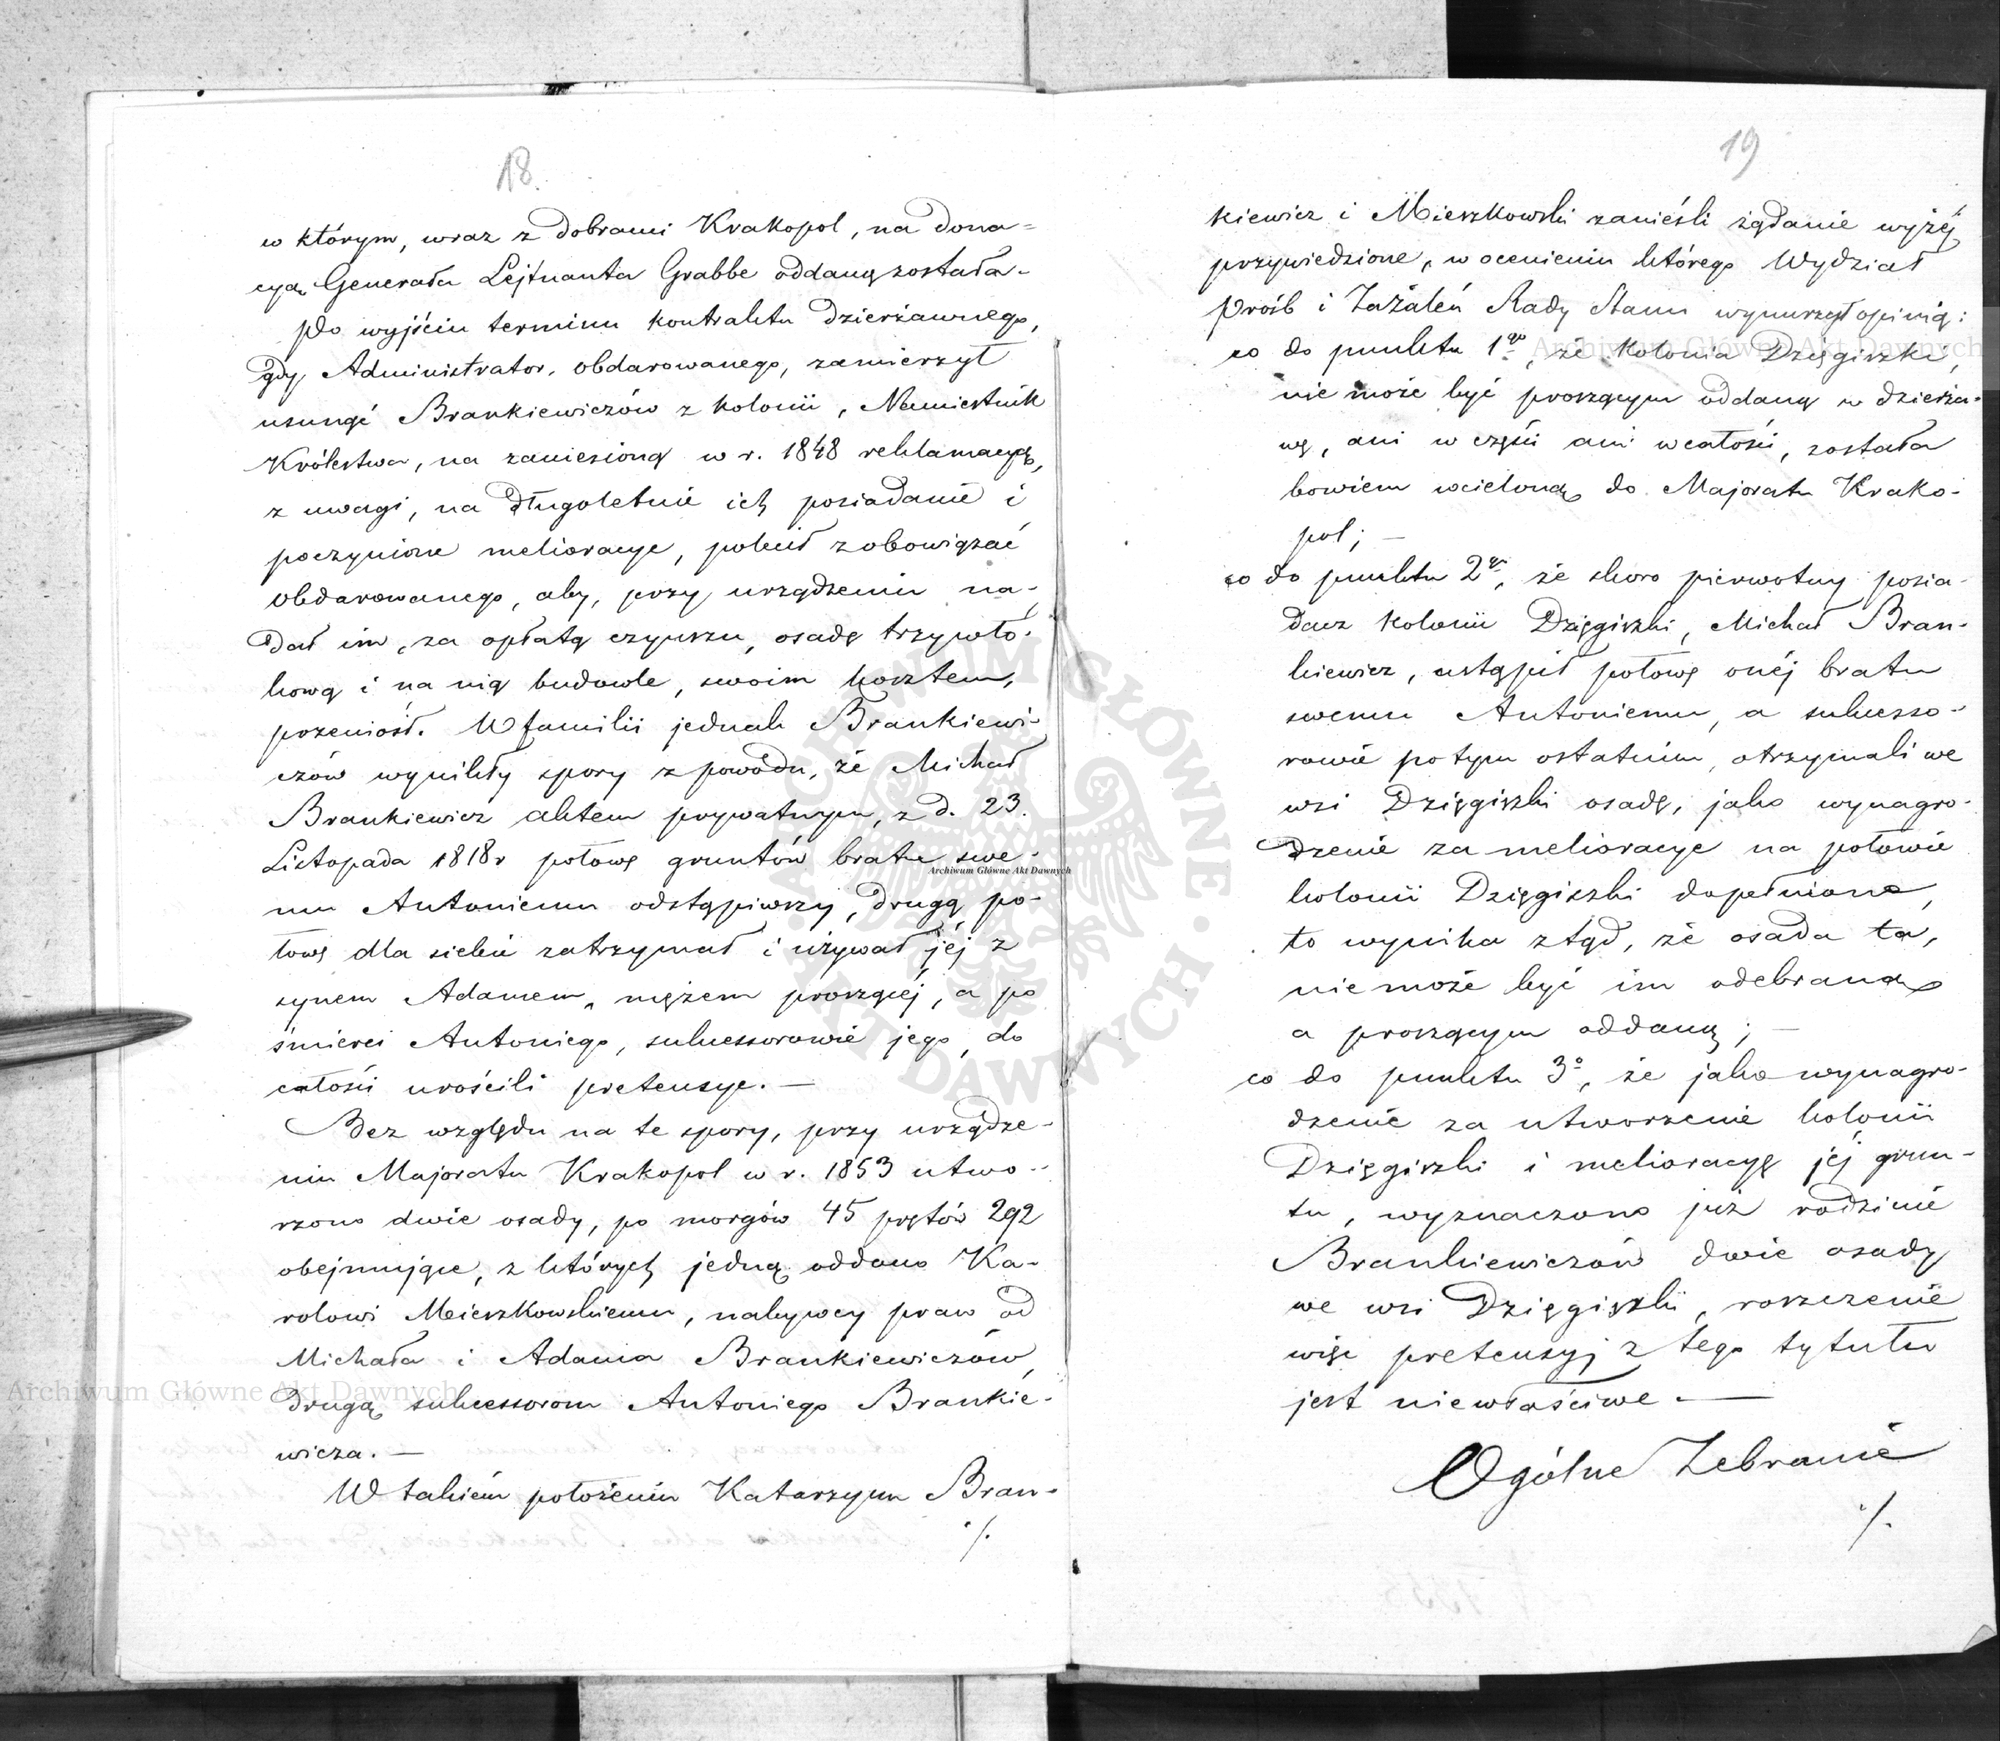 18.
w którym, wraz z dobrami Krakopol, na dona=
cyą Generała Lejtnanta Grabbe oddaną została.
Po wyjściu terminu kontraktu dzierżawnego,
gdy Administrator, obdarowanego, zamierzył
usunąć Brankiewiczów z kolonii, Namiestnik
Królestwa, na zaniesioną w r. 1848 reklamacyą,
z uwagi, na długoletnie ich posiadanie i
poczynione melioracye, polecił zobowiązać
obdarowanego, aby, przy urządzeniu na-
dał im, za opłatą czynszu, osadę trzywłó-
kową i na nią budowle, swoim kosztem,
przeniósł. W familii jednak Brankiewi-
czów wynikły spory z powodu, że Michał
Brankiewicz aktem prywatnym, z d. 23.
Listopada 1818 r połowę gruntów bratu swe-
mu Antoniemu odstąpiwszy, drugą po-
łowę dla siebie zatrzymał i używał jéj z
synem Adamem, mężem proszącéj, a po
śmierci Antoniego, sukcessorowie jego, do
całości urościli pretensye. —
Bez względu na te spory, przy urządze-
niu Majoratu Krakopol w r. 1853 utwo-
rzono dwie osady, po morgów 45 prętów 292
obejmujące, z których jedną oddano Ka-
rolowi Mieszkowskiemu, nabywcy praw od
Michała i Adama Brankiewiczów,
drugą sukcessorom Antoniego Brankie-
wicza. —
W takiém położeniu Katarzyna Bran-
./.
19
kiewicz i Mieszkowski zanieśli żądanie wyżéj
przywiedzione, w ocenieniu którego Wydział
Próśb i Zażaleń Rady Stanu wynurzył opinię:
co do punktu 1go, że kolonia Dzięgiszki,
nie może być proszącym oddaną w dzierża-
wę, ani w części ani w całości, została
bowiem wcieloną do Majoratu Krako-
pol; —
co do punktu 2go, że skoro pierwotny posia-
dacz kolonii Dzięgiszki, Michał Bran-
kiewicz, ustąpił połowę onéj bratu
swemu Antoniemu, a sukcesso-
rowie po tym ostatnim, otrzymali we
wsi Dzięgiszki osadę, jako wynagro-
dzenie za melioracye na połowie
kolonii Dzięgiszki dopełnione,
to wynika ztąd, że osada ta,
nie może być im odebraną
a proszącym oddaną; —
co do punktu 3o, że jako wynagro-
dzenie za utworzenie kolonii
Dzięgiszki i melioracyę jéj grun-
tu, wyznaczono już rodzinie
Brankiewiczów dwie osady
we wsi Dzięgiszki, roszczenie
więc pretensyj z tego tytułu
jest niewłaściwe. —
Ogólne Zebranie
./.
Archiwum Główne Akt Dawnych
Archiwum Główne Akt Dawnych
Archiwum Główne Akt Dawnych
ARCHIWUM GŁÓWNE · AKT DAWNYCH ·